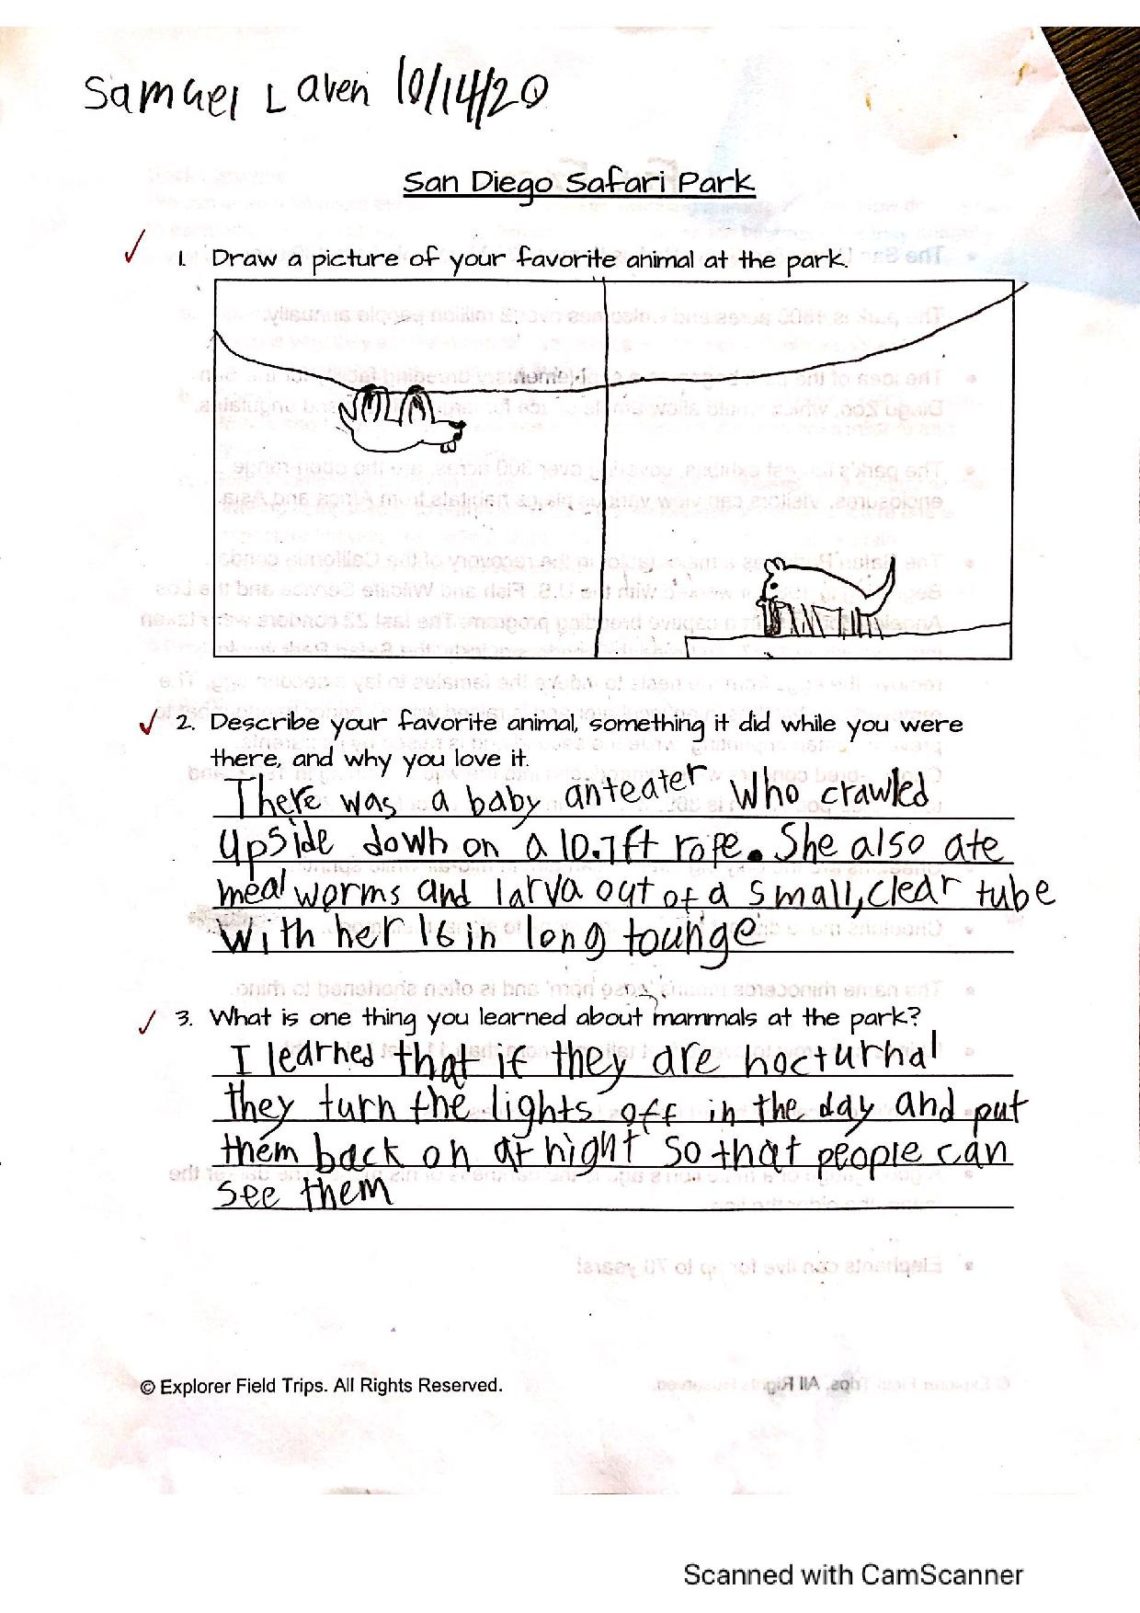 Samuel Laven 10/14/20
San Diego Safari Park
1. Draw a picture of your favorite animal at the park.
2. Describe your favorite animal, something it did while you were
there, and why you love it.
There was a baby anteater who crawled
upside down on a 10.7ft rope. She also ate
meal worms and larva out of a small, clear tube
with her 16in long tounge
3. What is one thing you learned about mammals at the park?
I learned that if they are nocturnal
they turn the lights off in the day and put
them back on at night so that people can
see them
© Explorer Field Trips. All Rights Reserved.
Scanned with CamScanner